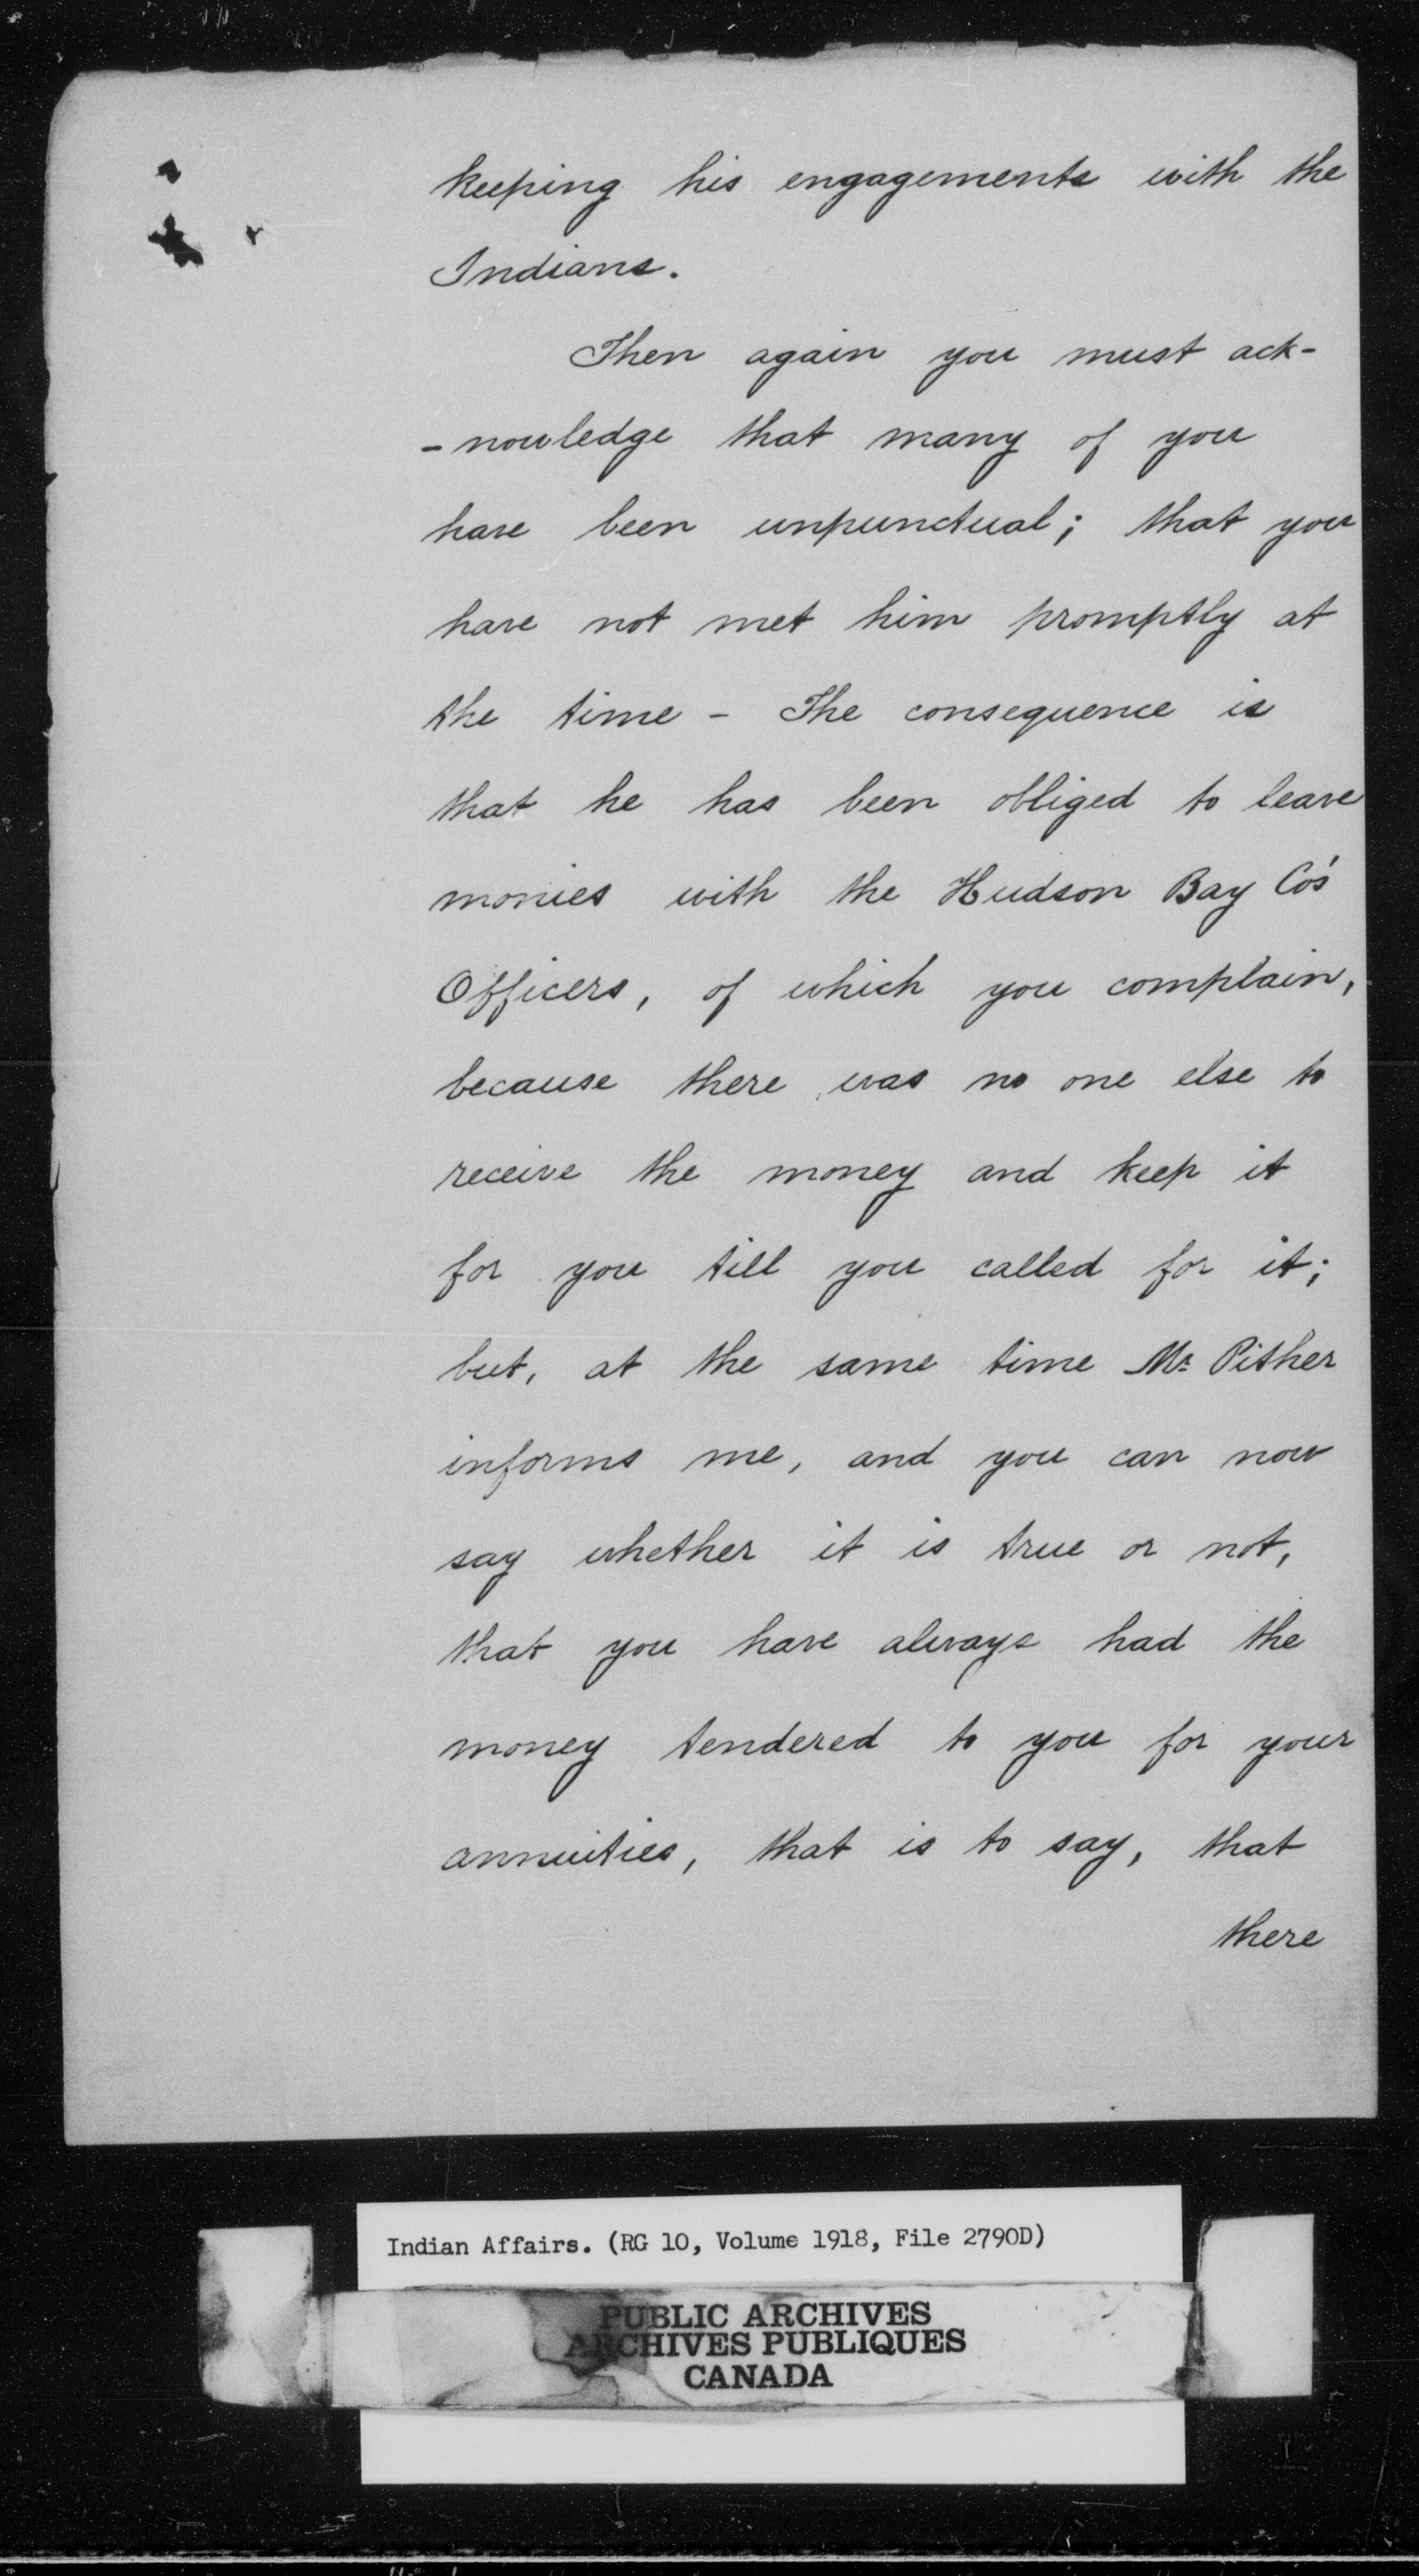 keeping his engagements with the
Indians.
Then again you must ack-
-nowledge that many of you
have been unpunctual; that you
have not met him promptly at
the time - The consequence is
that he has been obliged to leave
monies with the Hudson Bay Co's
Officers, of which you complain,
because there was no one else to
receive the money and keep it
for you till you called for it;
but, at the same time Mr. Pither
informs me, and you can now
say whether it is true or not,
that you have always had the
money tendered to you for your
annuities, that is to say, that
there
Indian Affairs. (RG 10, Volume 1918, File 2790D)
PUBLIC ARCHIVES
ARCHIVES PUBLIQUES
CANADA